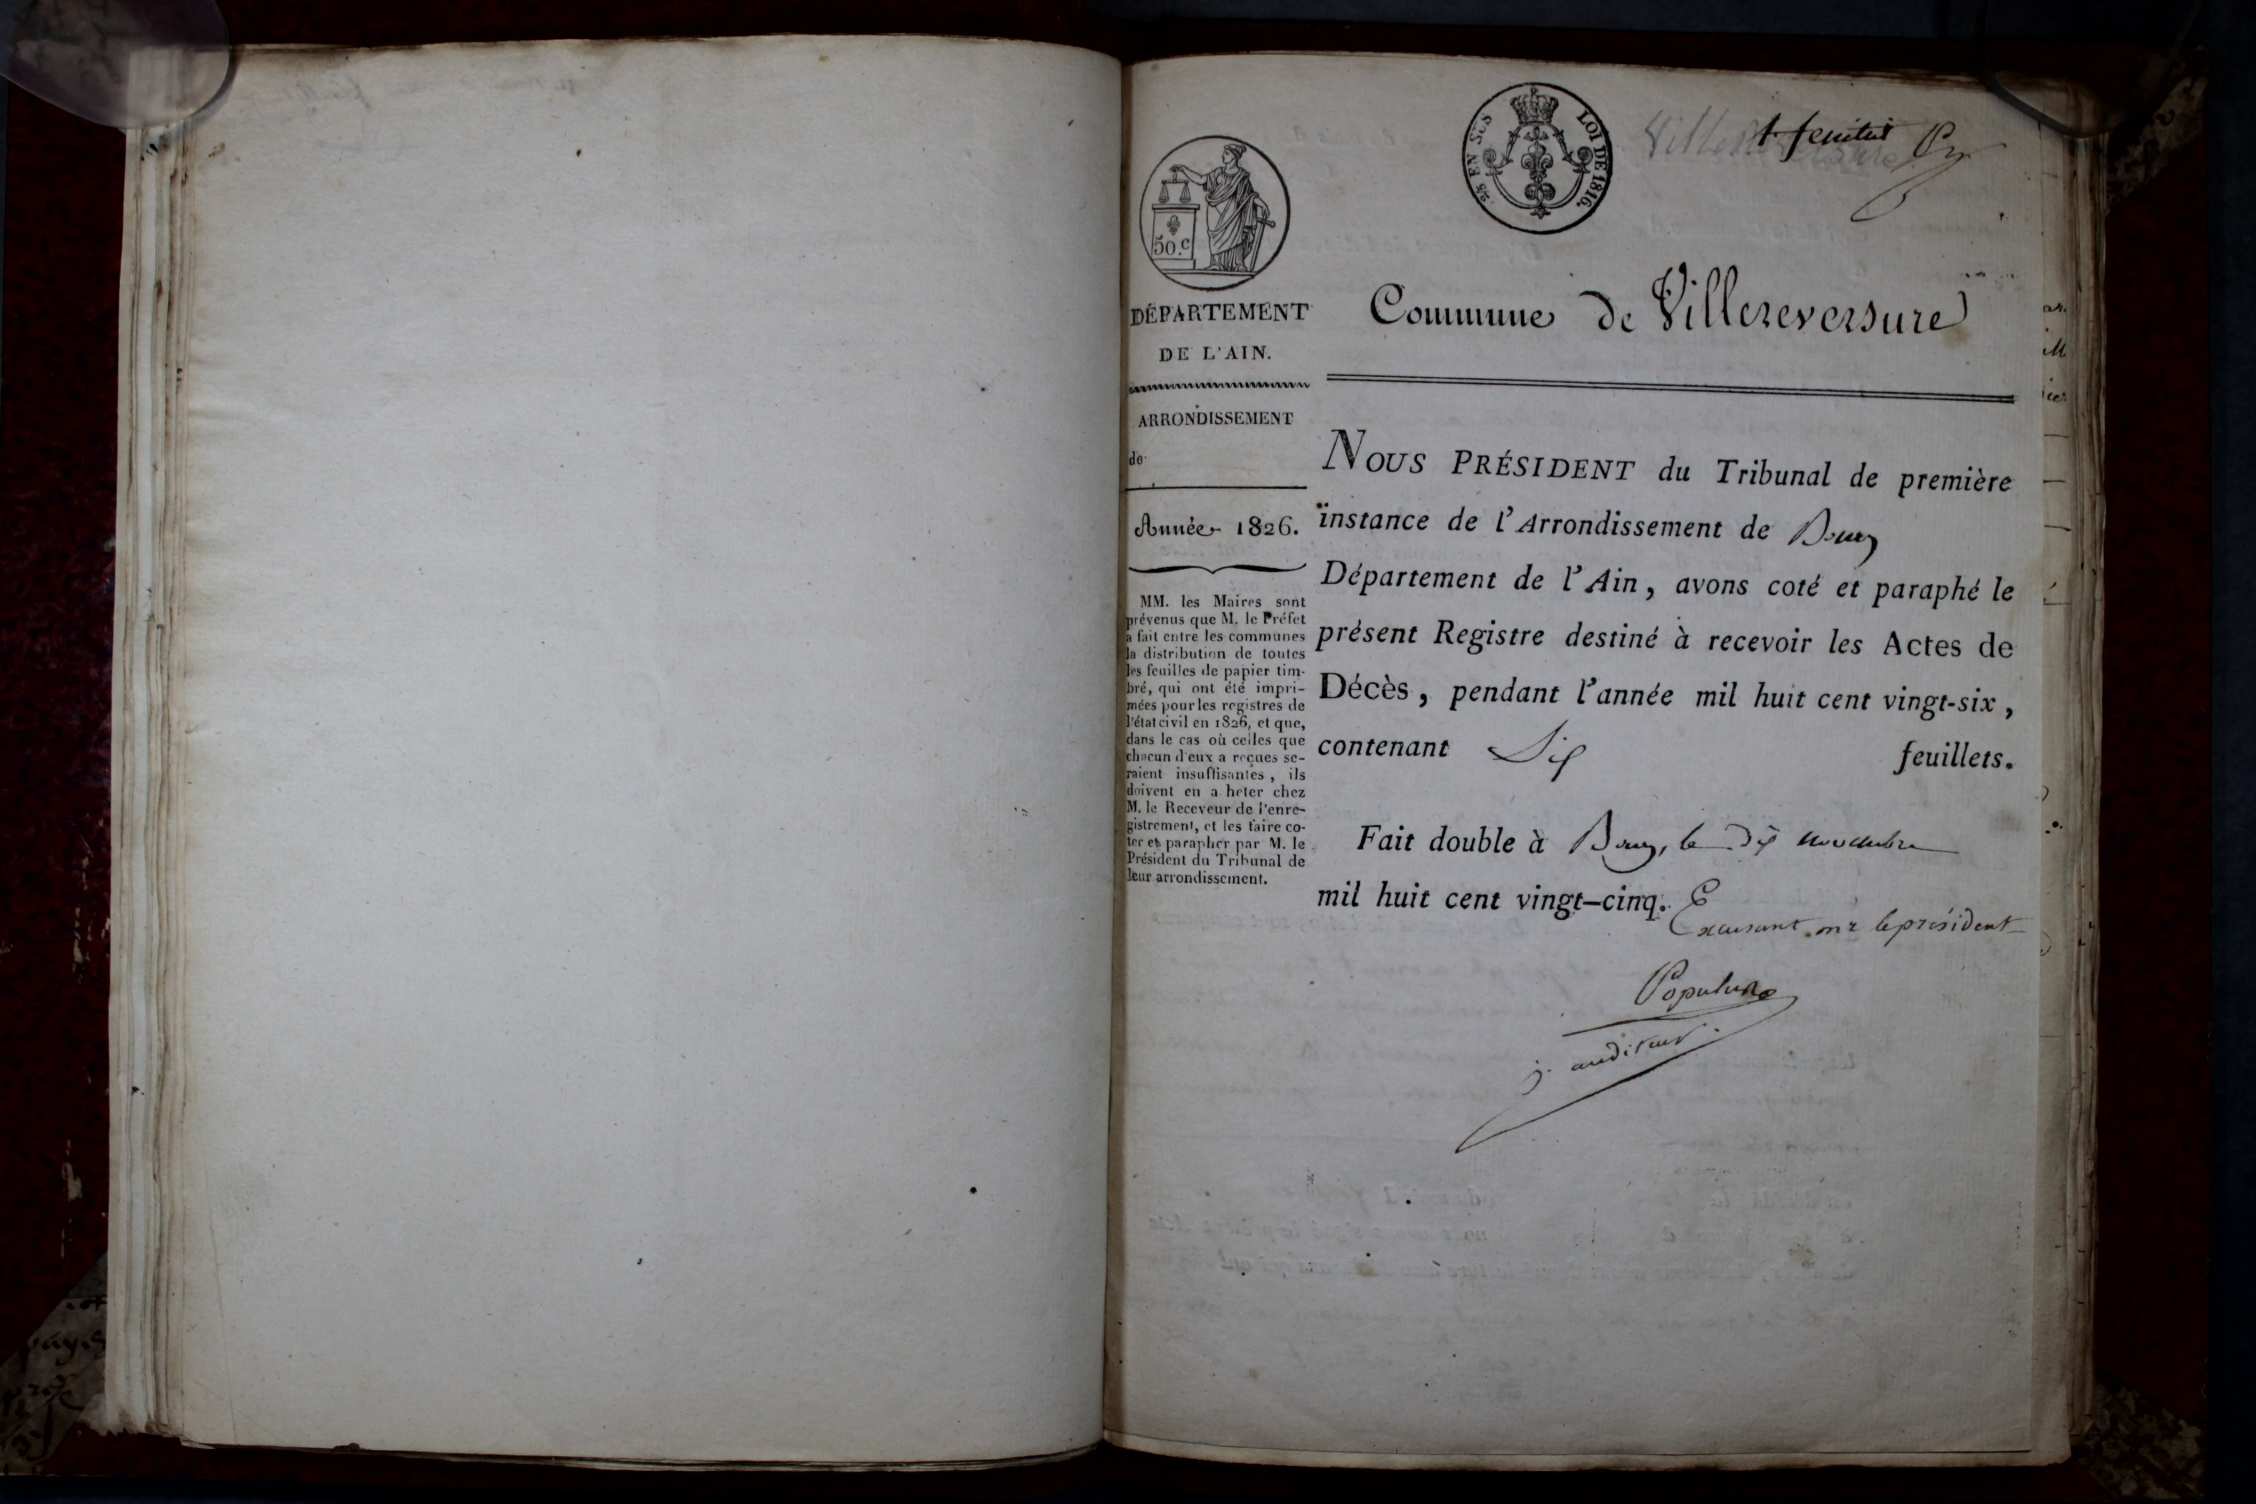 25 EN SUS
LOI DE 1816.
1er feuillet
50.c
DÉPARTEMENT
DE L'AIN.
ARRONDISSEMENT
de
Année 1826.
MM. les Maires sont
prévenus que M. le Préfet
a fait entre les communes
la distribution de toutes
les feuilles de papier tim-
bré, qui ont été impri-
mées pour les registres de
l'état civil en 1826, et que,
dans le cas où celles que
chacun d'eux a reçues se-
raient insuffisantes, ils
doivent en a heter chez
M. le Receveur de l'enre-
gistrement, et les faire co-
ter et parapher par M. le
Président du Tribunal de
leur arrondissement.
Commune de Villereversure
NOUS PRÉSIDENT du Tribunal de première
instance de l'Arrondissement de Bourg
Département de l'Ain, avons coté et paraphé le
présent Registre destiné à recevoir les Actes de
Décès, pendant l'année mil huit cent vingt-six,
contenant Six feuillets.
Fait double à Bourg, le dix novembre
mil huit cent vingt-cinq.
Excusant mr le président
Populus
j. auditeur